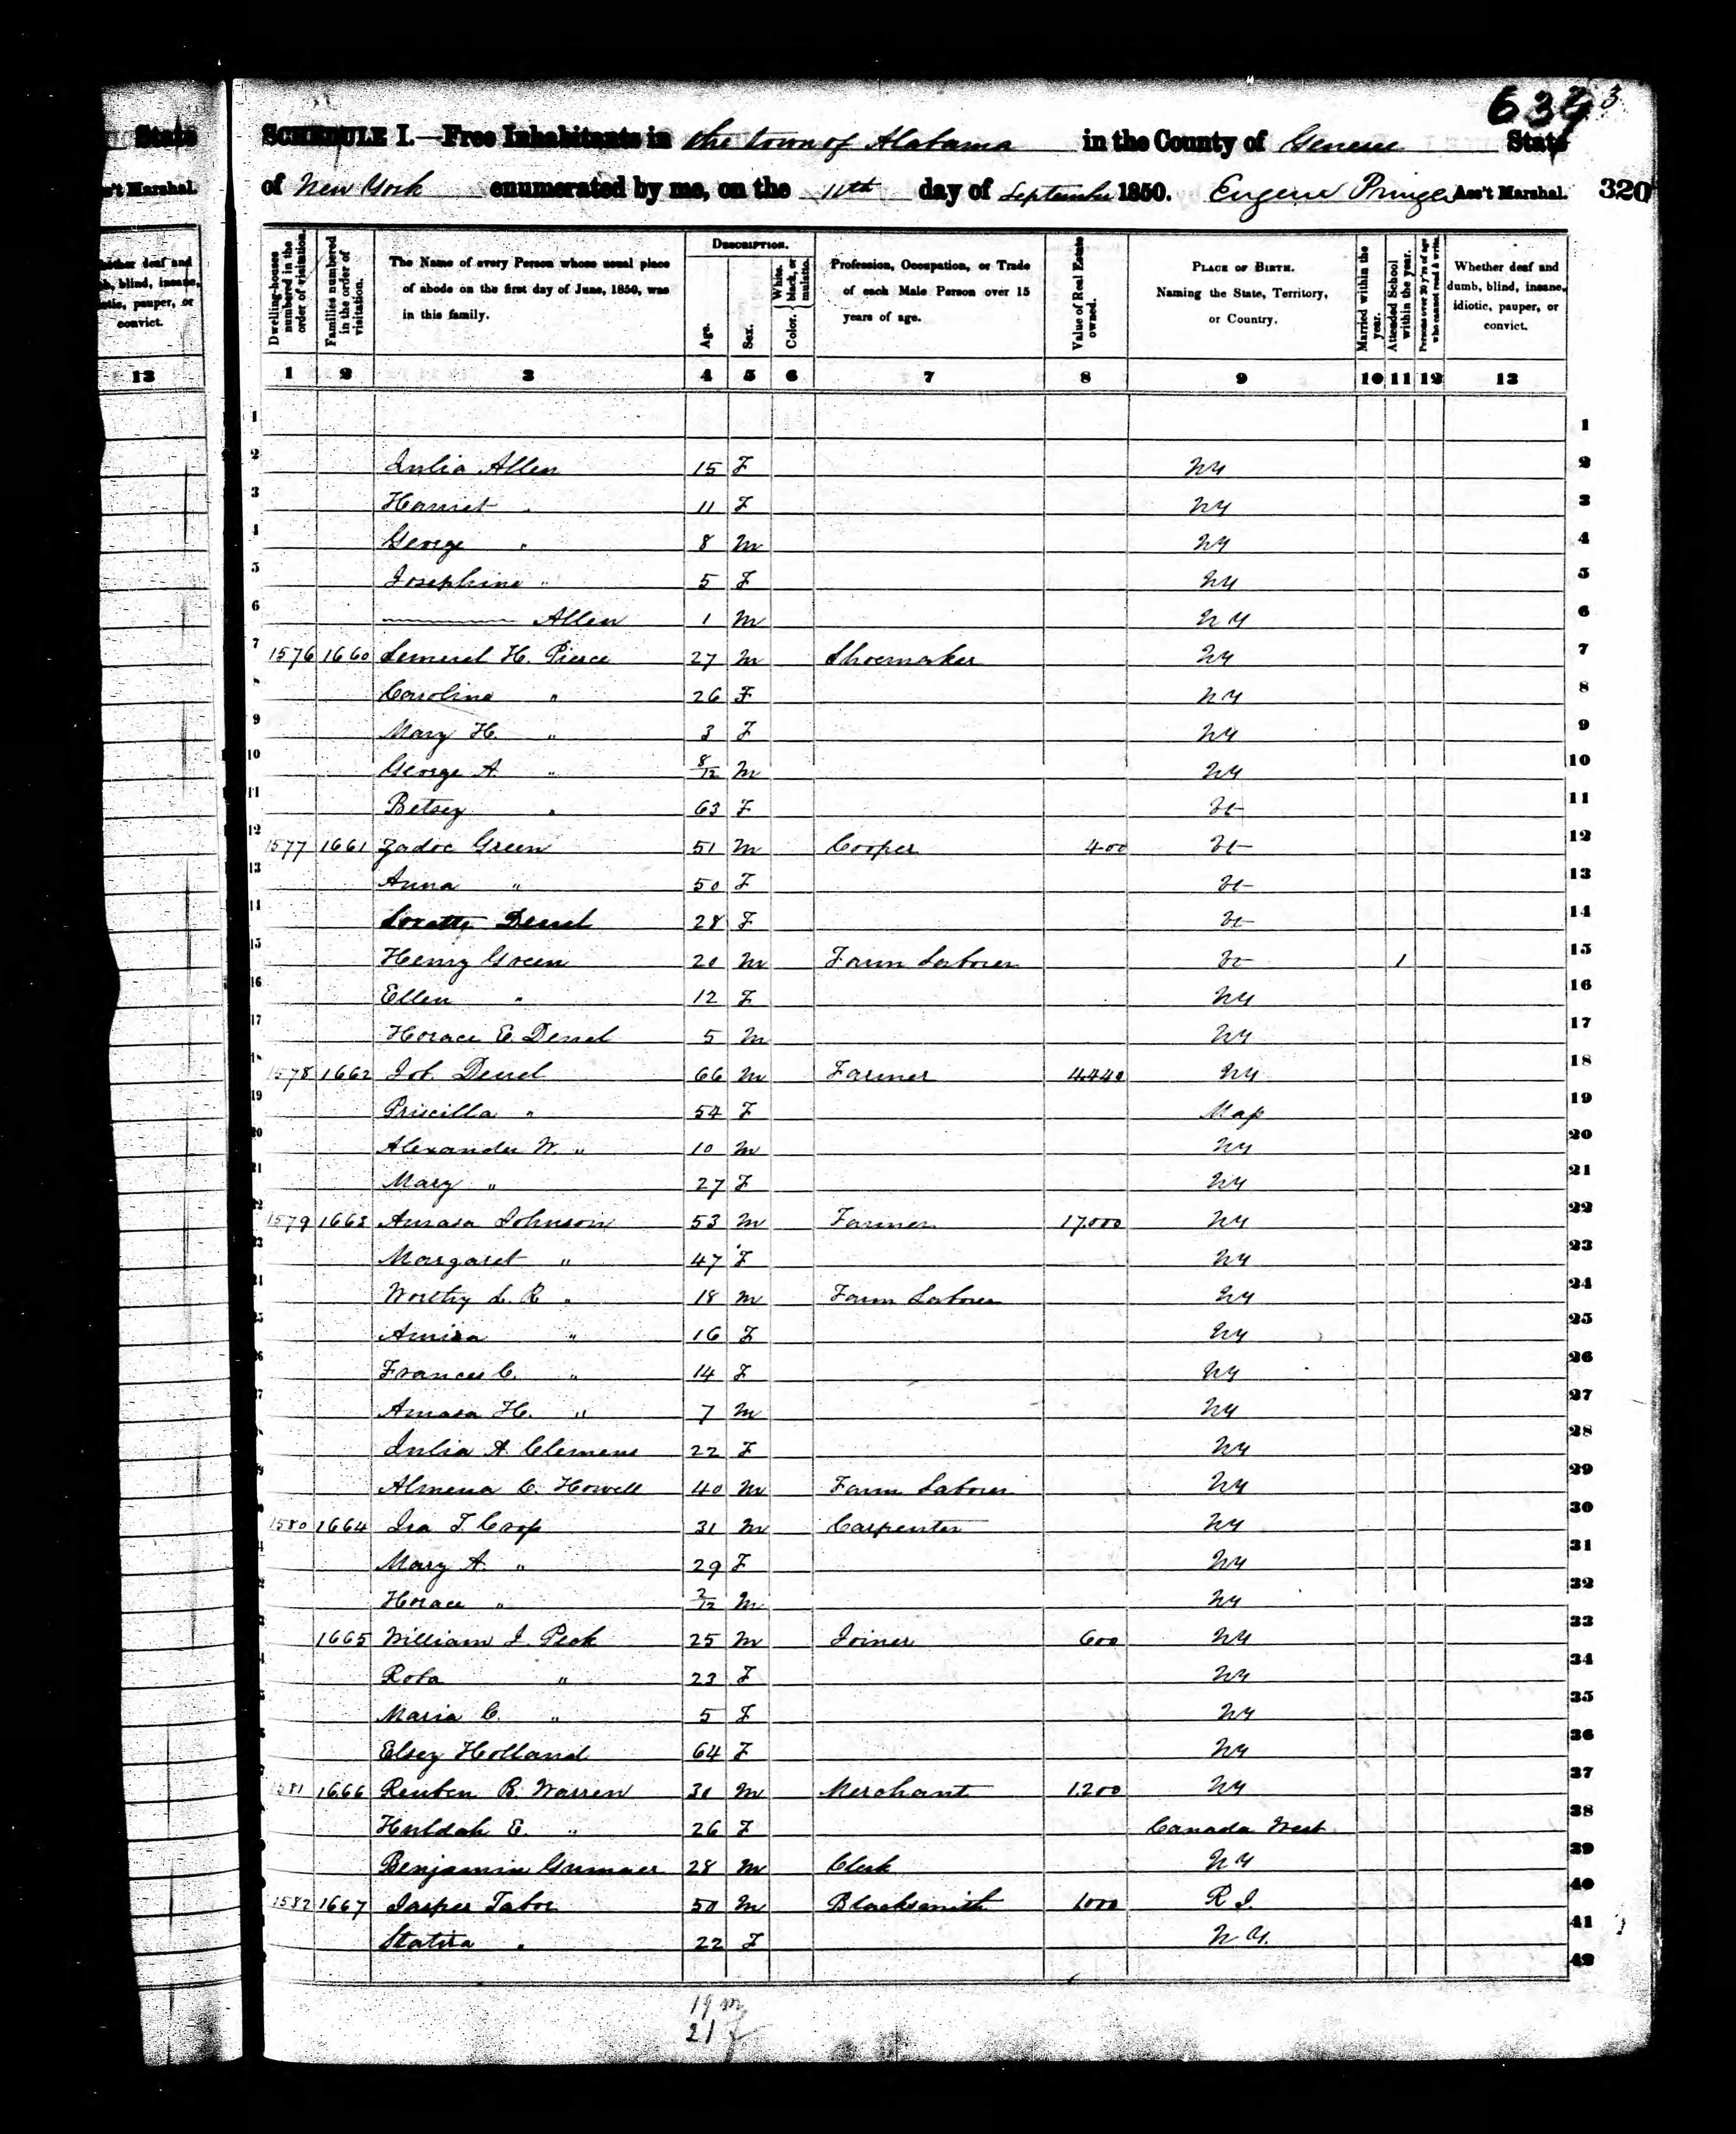 State
SCHEDULE I.—Free Inhabitants in the town of Alabama in the County of Genesee State
of New York enumerated by me, on the 11th day of September 1850. Eugene Pringle Ass't Marshal. 320
's't Marshal.
Dwelling-houses numbered in the order of visitation.
Families numbered in the order of visitation.
The Name of every Person whose usual place of abode on the first day of June, 1850, was in this family.
DESCRIPTION.
Age.
Sex.
Color. White, black, or mulatto.
Profession, Occupation, or Trade of each Male Person over 15 years of age.
Value of Real Estate owned.
PLACE OF BIRTH. Naming the State, Territory, or Country.
Married within the year.
Attended School within the year.
Persons over 20 y'rs of age who cannot read & write.
Whether deaf and dumb, blind, insane, idiotic, pauper, or convict.
13 1 2 3 4 5 6 7 8 9 10 11 12 13
1 1
2 Julia Allen 15 F NY 2
3 Harriet " 11 F NY 3
4 George " 8 M NY 4
5 Josephine " 5 F NY 5
6 —— Allen 1 M NY 6
7 1576 1660 Lemuel H. Pierce 27 M Shoemaker NY 7
Caroline " 26 F NY 8
9 Mary H. " 3 F NY 9
10 George A " 8/12 M NY 10
11 Betsey " 63 F Vt 11
12 1577 1661 Zadoc Green 51 M Cooper 400 Vt 12
13 Anna " 50 F Vt 13
14 Loratta Deuel 28 F Vt 14
15 Henry Green 20 M Farm Laborer Vt 1 15
16 Ellen " 12 F NY 16
17 Horace E. Deuel 5 M NY 17
1578 1662 Job Deuel 66 M Farmer 4440 NY 18
19 Priscilla " 54 F Mass 19
20 Alexander W. " 10 M NY 20
21 Mary " 27 F NY 21
1579 1663 Amasa Johnson 53 M Farmer 17.000 NY 22
Margaret " 47 F NY 23
Worthy L. R. " 18 M Farm Laborer NY 24
Amira " 16 F NY 25
Frances C. " 14 F NY 26
Amasa H. " 7 M NY 27
Julia A. Clemens 22 F NY 28
Almena C. Howell 40 M Farm Laborer NY 29
1580 1664 Ira T. Crop 31 M Carpenter NY 30
Mary A. " 29 F NY 31
Horace " 2/12 M NY 32
1665 William J. Peck 25 M Joiner 600 NY 33
Roba " 23 F NY 34
Maria C. " 5 F NY 35
Elsey Holland 64 F NY 36
1581 1666 Reuben R. Warren 31 M Merchant 1.200 NY 37
Huldah E. " 26 F Canada West 38
Benjamin Gumaer 28 M Clerk NY 39
1582 1667 Jasper Tabor 50 M Blacksmith 1000 R I. 40
Statira " 22 F N Y. 41
42
19 m
21 f